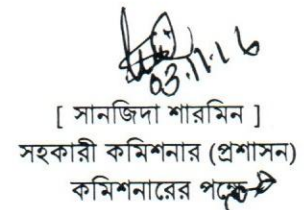 03.11.16
[ সানজিদা শারমিন ]
সহকারী কমিশনার (প্রশাসন)
কমিশনারের পক্ষে